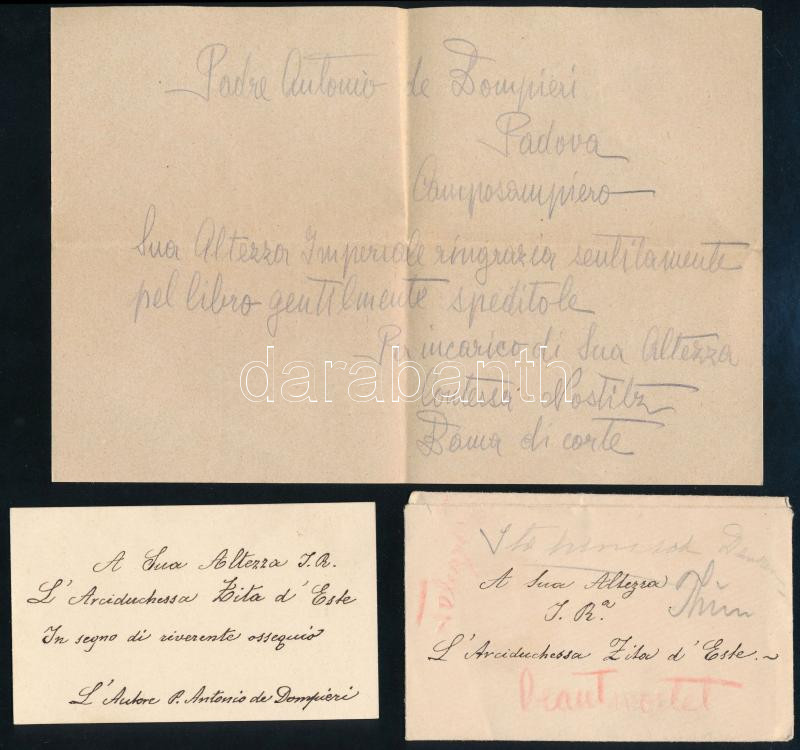 Padre Antonio de Dompieri
Padova
Camposampiero
Sua Altezza Imperiale ringrazia sentitamente
pel libro gentilmente speditole
Per incarico di Sua Altezza
darabanth
Contessa Nostitz
Dama di corte
A Sua Altezza I.R.
L'Arciduchessa Zita d'Este
In segno di riverente ossequio
L'Autore P. Antonio de Dompieri
A Sua Altezza
Thun
I. Rª.
L'Arciduchessa Zita d'Este. ~
beantwortet